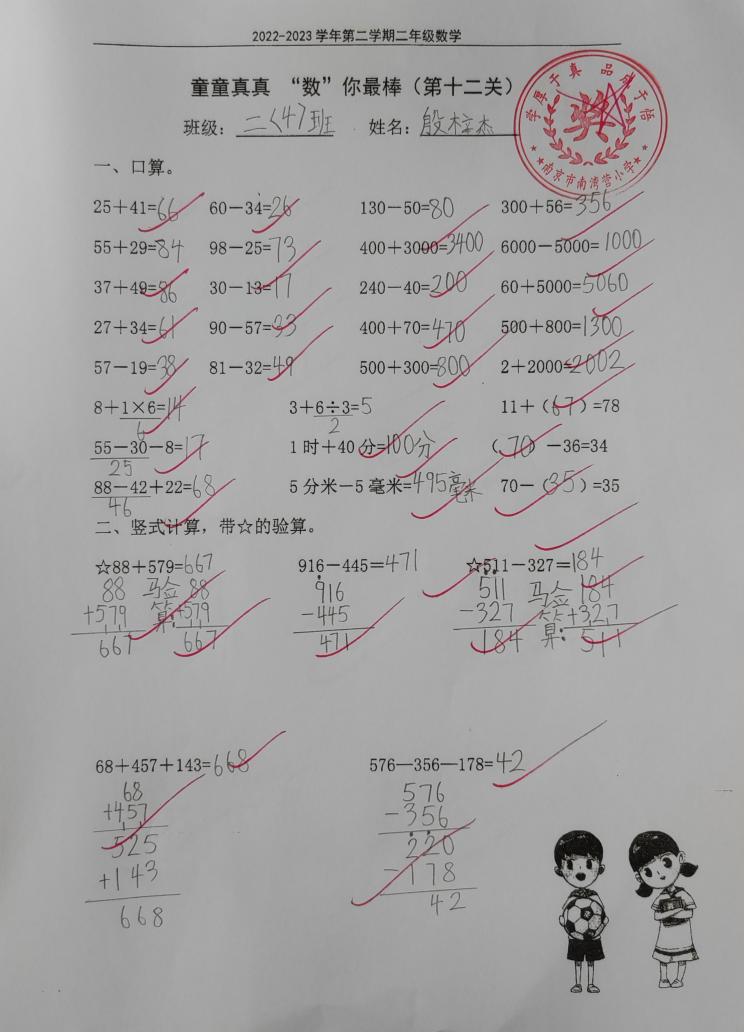 2022-2023学年第二学期二年级数学
童童真真 “数”你最棒(第十二关)
班级: 二〈4〉班 姓名: 殷梓杰
学厚于真 品成于悟
奖
★南京市南湾营小学★
一、口算。
25+41=66 60-34=26 130-50=80 300+56=356
55+29=84 98-25=73 400+3000=3400 6000-5000=1000
37+49=86 30-13=17 240-40=200 60+5000=5060
27+34=61 90-57=33 400+70=470 500+800=1300
57-19=38 81-32=49 500+300=800 2+2000=2002
8+1×6=14 3+6÷3=5 11+(67)=78
6 2
55-30-8=17 1时+40分=100分 (70)-36=34
25
88-42+22=68 5分米-5毫米=495毫米 70-(35)=35
46
二、竖式计算,带☆的验算。
☆88+579=667 916-445=471 ☆511-327=184
88 验 88 916 511 验 184
+579 算: +579 -445 -327 算: +327
667 667 471 184 511
68+457+143=668 576-356-178=42
68 576
+457 -356
525 220
+143 -178
668 42